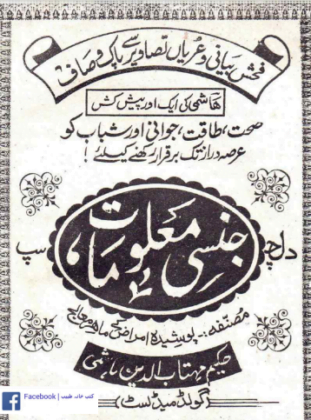 فحش بیانی و عریاں تصاویر سے پاک و صاف
ھاشمی کی ایک اور پیش کش
صحت، طاقت، جوانی اور شباب کو
عرصہ دراز تک برقرار رکھنے کیلئے!
دلچسپ
جنسی معلومات
مصنفہ:- پوشیدہ امراض کے ماہر معالج
حکیم مہتاب الدین ہاشمی
(گولڈ میڈلسٹ)
Facebook | کتب خانہ طبیب